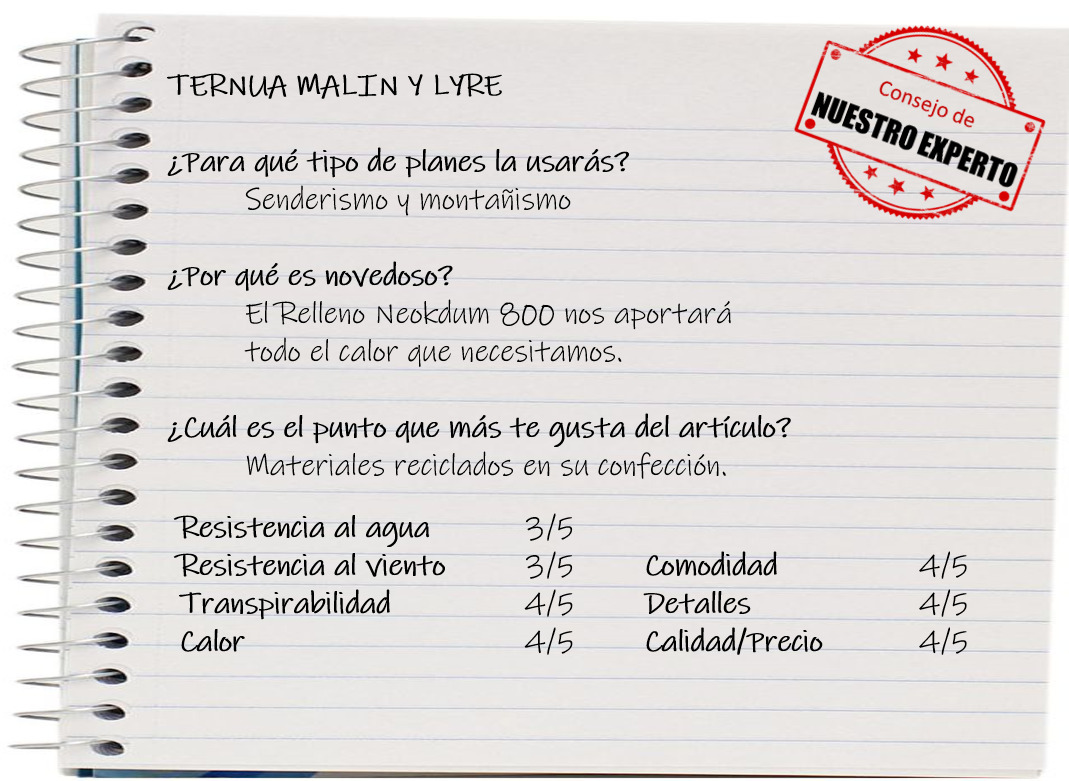 TERNUA MALIN Y LYRE
Consejo de
NUESTRO EXPERTO
¿Para qué tipo de planes la usarás?
Senderismo y montañismo
¿Por qué es novedoso?
El Relleno Neokdum 800 nos aportará
todo el calor que necesitamos.
¿Cuál es el punto que más te gusta del artículo?
Materiales reciclados en su confección.
Resistencia al agua 3/5
Resistencia al viento 3/5 Comodidad 4/5
Transpirabilidad 4/5 Detalles 4/5
Calor 4/5 Calidad/Precio 4/5